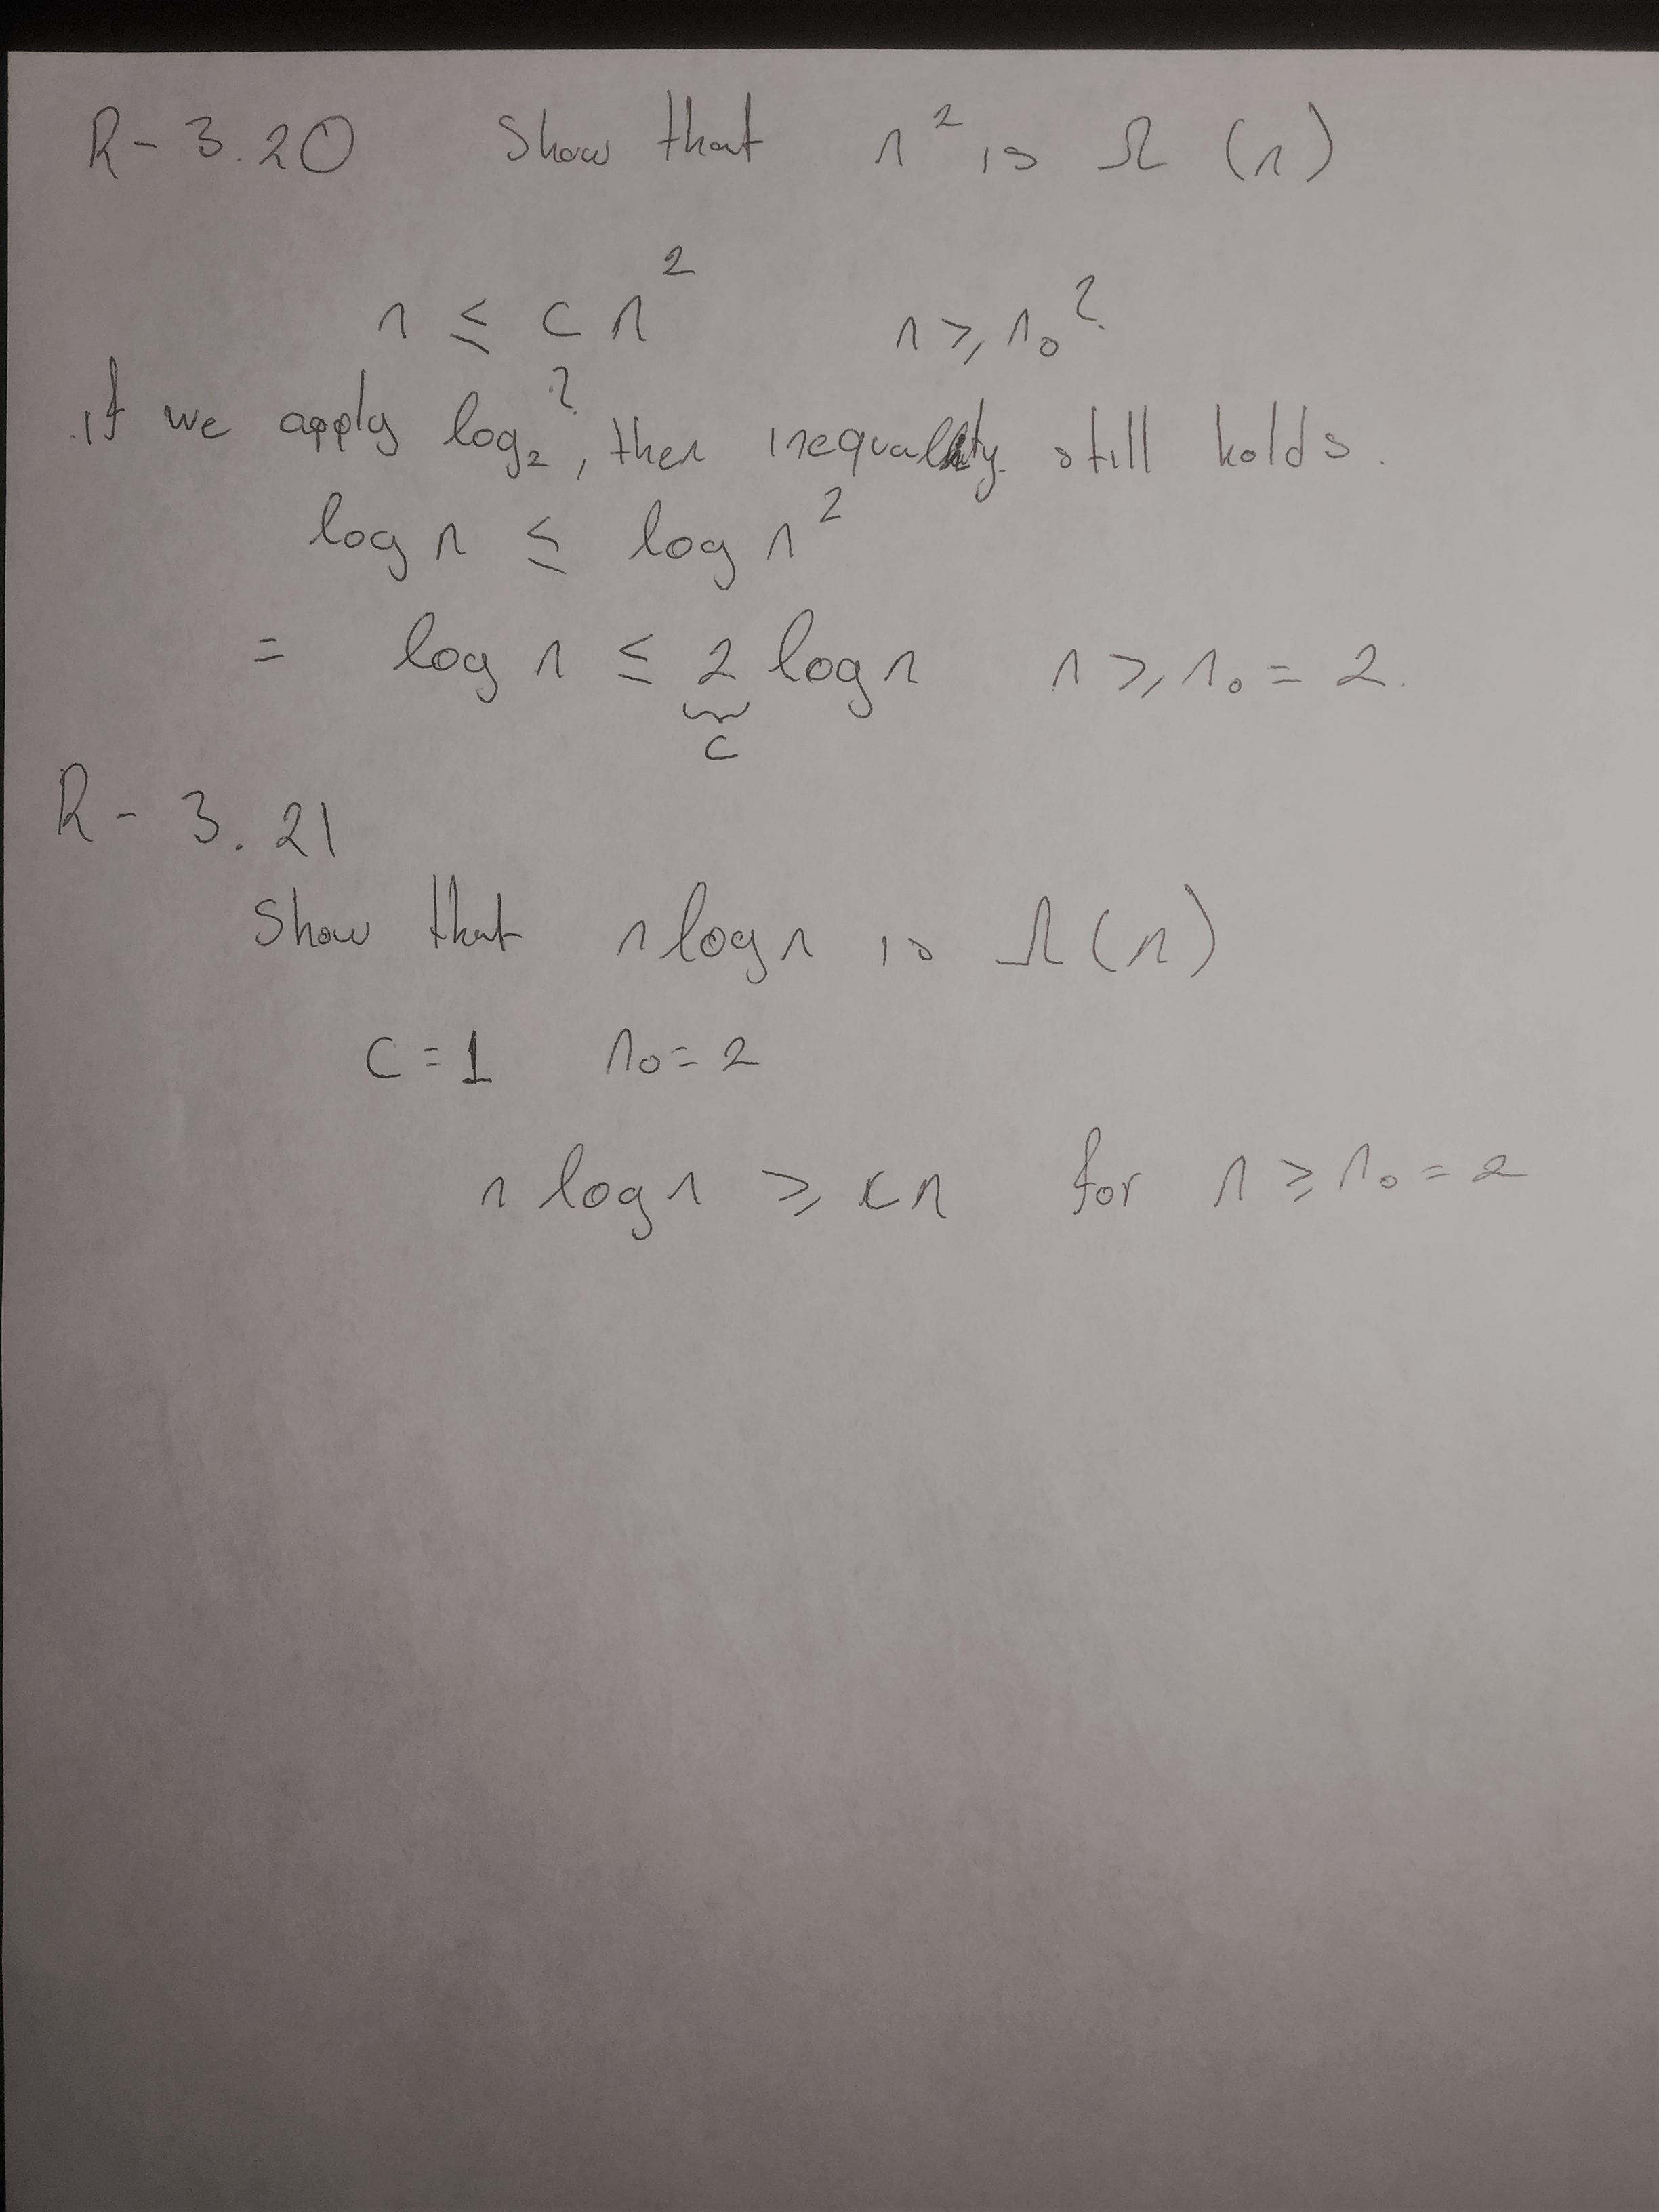 R-3.20 Show that n² is Ω (n)
n ≤ c n² n ≥ n₀?
if we apply log₂?, then inequality still holds.
log n ≤ log n²
= log n ≤ 2 log n n ≥ n₀ = 2.
c
R-3.21
Show that n log n is Ω(n)
c = 1 n₀ = 2
n log n ≥ cn for n ≥ n₀ = 2